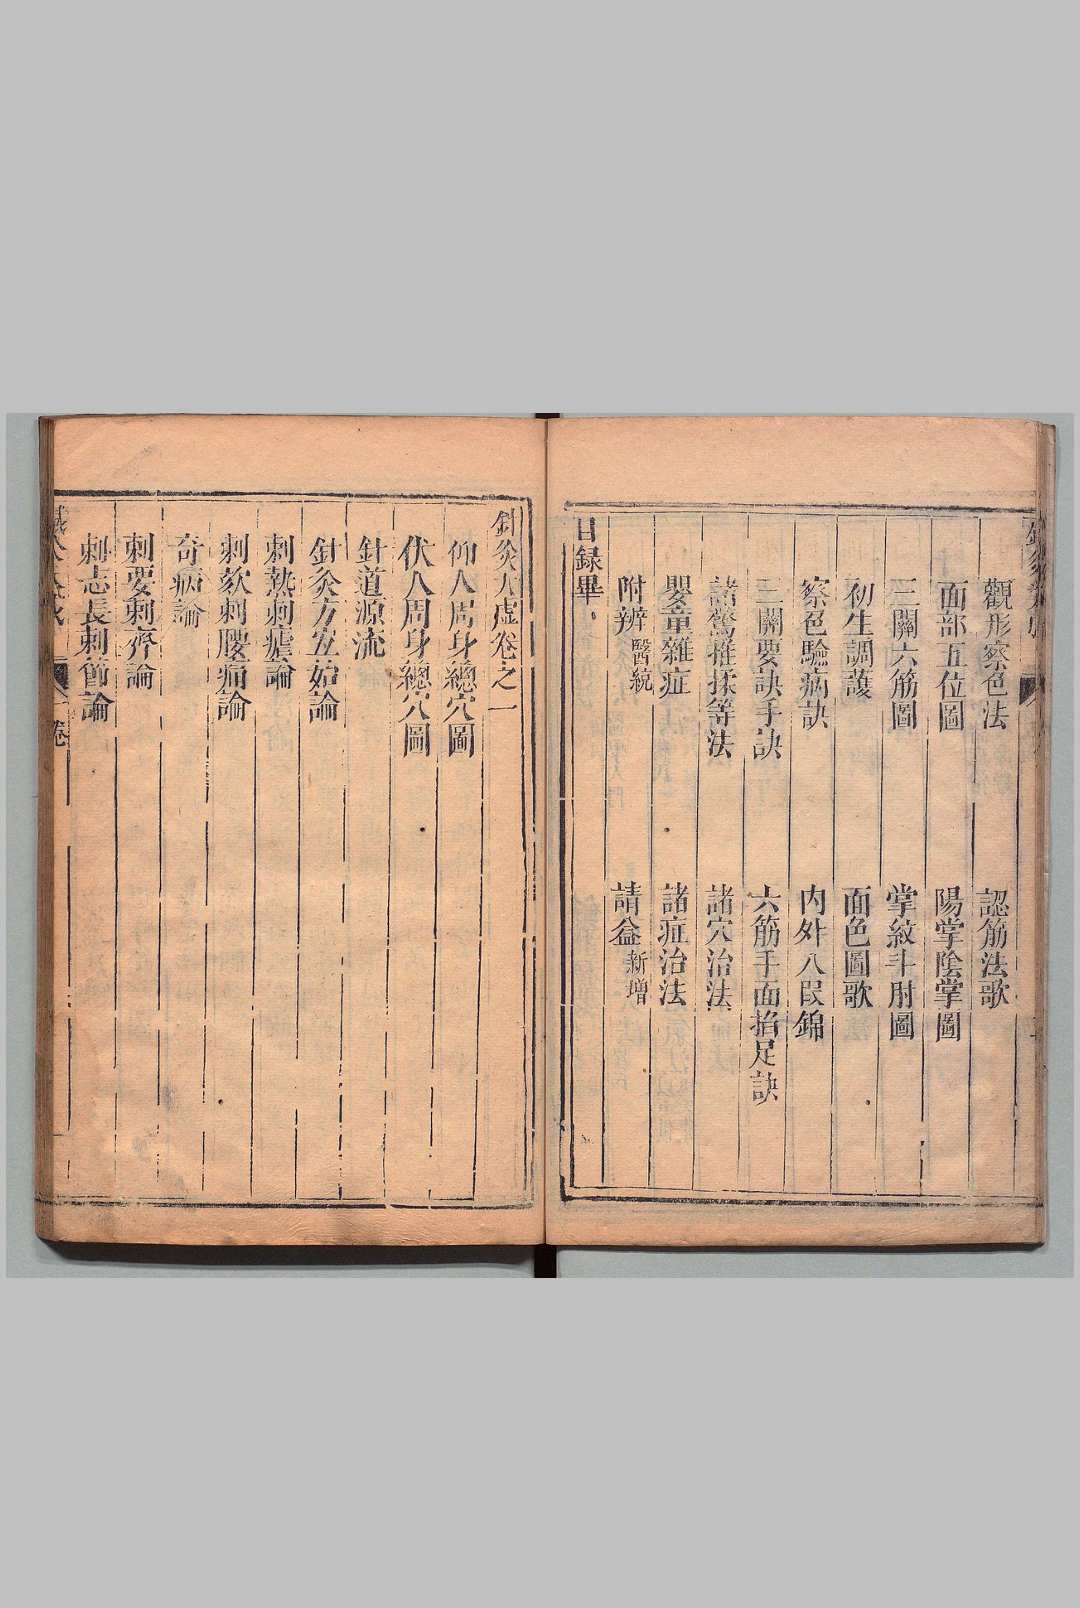 觀形察色法　認筋法歌
面部五位圖　陽掌陰掌圖
三關六筋圖　掌紋斗肘圖
初生調護　面色圖歌
察色驗病訣　内外八叚錦
三關要訣手訣　六筋手面掐足訣
諸驚推揉等法　諸穴治法
嬰童雜症　諸症治法
附辨醫統　請益新增
目録畢。
針灸大成卷之一
仰人周身總穴圖
伏人周身總穴圖
針道源流
針灸方宜始論
刺熱刺瘧論
刺欬刺腰痛論
奇病論
刺要刺齊論
刺志長刺節論